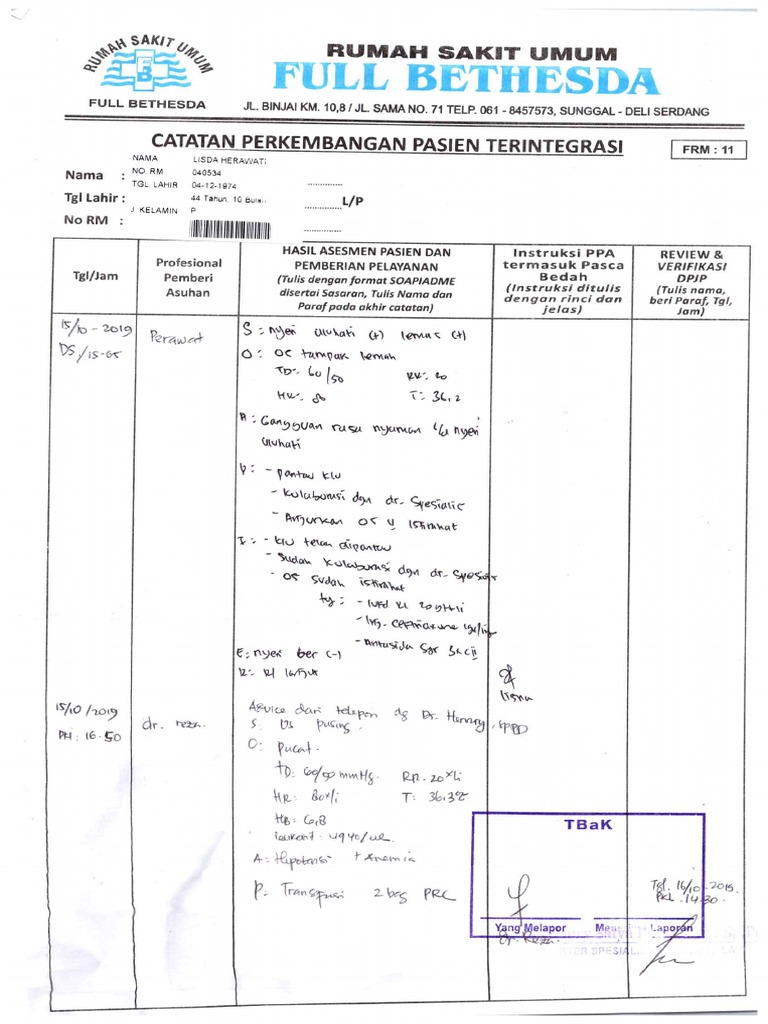 RUMAH SAKIT UMUM
FULL BETHESDA
RUMAH SAKIT UMUM
FULL BETHESDA
JL. BINJAI KM. 10,8 / JL. SAMA NO. 71 TELP. 061 - 8457573, SUNGGAL - DELI SERDANG
CATATAN PERKEMBANGAN PASIEN TERINTEGRASI
FRM : 11
Nama :
NAMA LISDA HERAWATI
NO. RM 040534
Tgl Lahir :
TGL. LAHIR 04-12-1974
44 Tahun, 10 Bulan
L/P
No RM :
J. KELAMIN P
Tgl/Jam
Profesional
Pemberi
Asuhan
HASIL ASESMEN PASIEN DAN
PEMBERIAN PELAYANAN
(Tulis dengan format SOAPIADME
disertai Sasaran, Tulis Nama dan
Paraf pada akhir catatan)
Instruksi PPA
termasuk Pasca
Bedah
(Instruksi ditulis
dengan rinci dan
jelas)
REVIEW &
VERIFIKASI
DPJP
(Tulis nama,
beri Paraf, Tgl,
Jam)
15/10-2019
DS/15-05
Perawat
S : nyeri uluhati (+) lemas (+)
O : OS tampak lemah
TD: 60/50 RR: 20
HR: 80 T: 36,2
A : Gangguan rasa nyaman nyeri
uluhati
P : - pantau KU
- Kolaborasi dgn dr. Spesialis
- Anjurkan OS istirahat
I : - KU telah dipantau
- Sudah kolaborasi dgn dr. Spesialis
- OS sudah istirahat
- IVFD RL 20 gtt/i
- Inj. Ceftriaxone
- Antasida Syr 3xCII
E : nyeri ber (-)
R : R/ lanjut
15/10/2019
Pkl : 16.50
dr. reza.
Advice dari telepon dg Dr. Henny, SpPD
S. Os pusing.
O : pucat.
TD : 60/50 mmHg. RR. 20x/i
HR : 80x/i T : 36,3°C
HB : 6,8
leukosit : 4940/uL.
A : Hipotensi + Anemia
P. Transfusi 2 bag PRC
TBaK
Tgl. 16/10
Pkl. 14.30
Yang Melapor
Laporan
Dr. Reza.